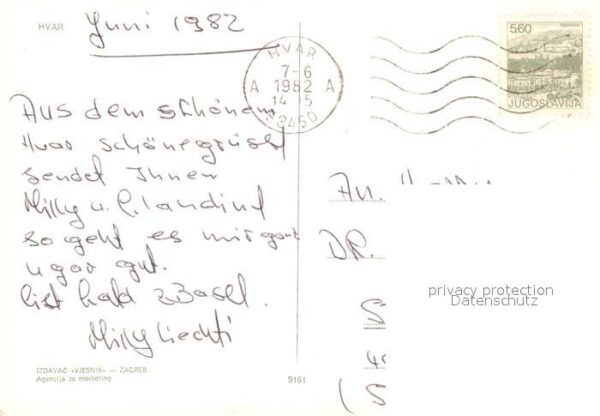 HVAR
Juni 1982
HVAR
7-6
A 1982 A
14 15
58450
TRAVNIK
5,60
JUGOSLAVIJA
Aus dem schönem
Hvar schöne grüsse
sendet Ihnen
Milly u.
so geht es mir ganz
u gar gut.
bald z Basel.
Milly Liechti
An.
DR.
privacy protection
Datenschutz
IZDAVAČ «VJESNIK» — ZAGREB
Agencija za marketing
9161